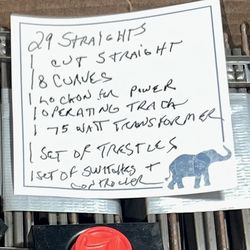 29 STRAIGHTS
1 CUT STRAIGHT
8 CURVES
1 LOCKON for POWER
1 OPERATING TRACK
1 75 WATT TRANSFORMER
1 SET OF TRESTLES
1 SET OF SWITCHES +
CONTROLLER